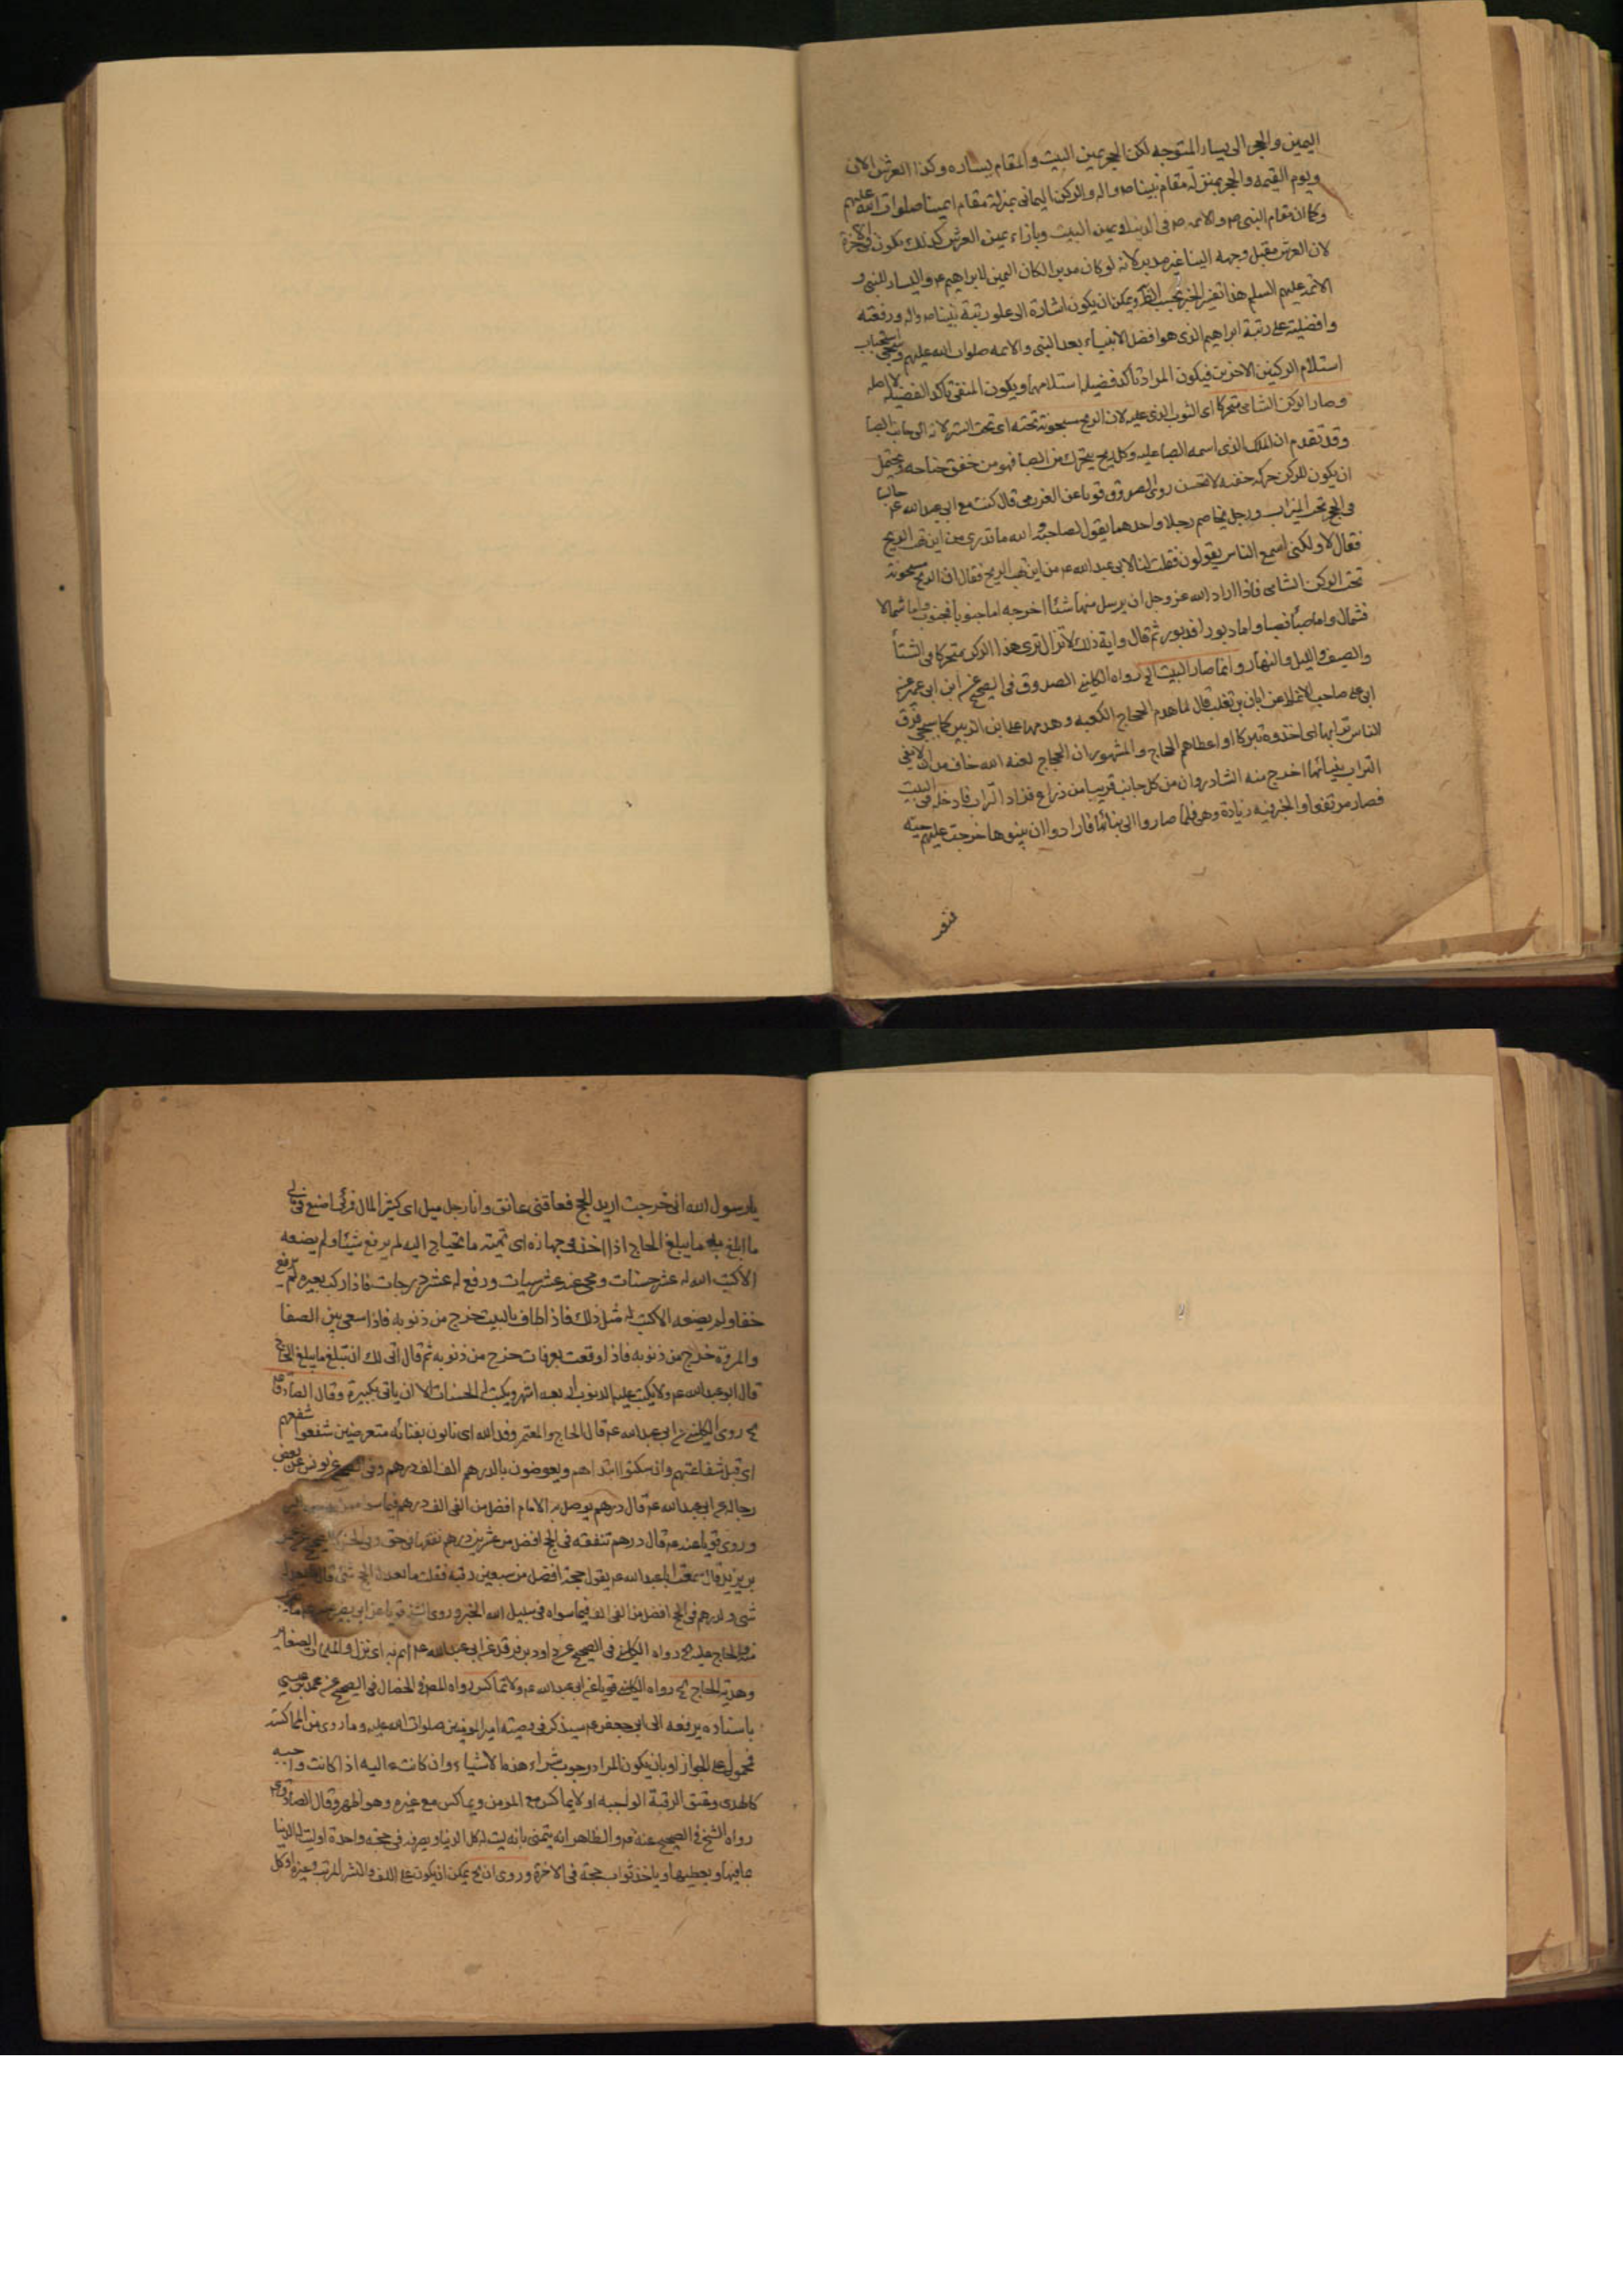 اليمين والحجر الى يسار المتوجه لكن الحجر يمين البيت والمقام يساره وكذا العرش الان
ويوم القيمه والحجر بمنزله مقام نبينا ص واله والركن اليمانى بمنزلة مقام ائمتنا صلوات الله عليهم
وكما ان مقام النبى ص والائمه ص فى الدنيا يمين البيت وبازاء يمين العرش كذلك يكون فى الاخرة
لان العرش مقبل وجهه الينا غير مدبر لانه لو كان مدبرا لكان اليمين لابراهيم ع واليسار للنبى و
الائمة عليهم السلم هذا تفسير الخبر بحسب الظ ويمكن ان يكون اشارة الى علو رتبة نبينا ص واله ورفعته
وافضليته على رتبة ابراهيم الذى هو افضل الانبياء بعد النبى والائمه صلوات الله عليهم وسيجى استحباب
استلام الركنين الاخرين فيكون المراد تأكد فضيلة استلامهما ويكون المنفى تأكد الفضيلة لا اصله
وصار الركن الشامى متحركا اى الثوب الذى عليه لان الريح مسجونة تحته اى تحت الستر لانه الى جانب الصبا
وقد تقدم ان الملك الذى اسمه الصبا عليه وكل ريح يتحرك من الصبا فهو من خفق جناحه ويحتمل
ان يكون للركن حركه خفيه لا تحس روى الصدوق قويا عن العزرمى قال كنت مع ابى عبد الله ع جالسا
فى الحجر تحت الميزاب ورجل يخاصم رجلا واحدهما يقول لصاحبه والله ما تدرى من اين تهب الريح
فقال لا ولكنى اسمع الناس يقولون فقلت انا لابى عبد الله ع من اين تهب الريح فقال ان الريح مسجونة
تحت الركن الشامى فاذا اراد الله عز وجل ان يرسل منها شئا اخرجه اما جنوبا فجنوب واما شمالا
فشمال واما صبأ فصبا واما دبورا فدبور ثم قال واية ذلك لا تزال ترى هذا الركن متحركا فى الشتأ
والصيف والليل والنهار وانما صار البيت الخ رواه الكلينى الصدوق فى الصحيح عن ابن ابى عمير عن
ابى على صاحب الانماط عن ابان بن تغلب قال لما هدم الحجاج الكعبه وهدمها على ابن الزبير كما سيجى فرق
الناس ترابها اى اخذوه تبركا او اعطاهم الحجاج والمشهور ان الحجاج لعنه الله خاف من ان لا يبقى
التراب ببنيانها اخرج منه الشادروان من كل جانب قريبا من ذراع فزاد التراب فادخله فى البيت
فصار مرتفعا والخبر فيه زيادة وهى فلما صاروا الى بنائها فارادوا ان يبنوها خرجت عليهم حية
يا رسول الله انى خرجت اريد الحج فعاقنى عائق وانا رجل ميل اى كثير المال فمرنى اصنع فى مالى
ما ابلغ به ما يبلغ الحاج اذا اخذ فى جهازه اى تهيئته ما يحتاج اليه لم يرفع شيئا ولم يضعه
الا كتب الله له عشر حسنات ومحى عنه عشر سيات ورفع له عشر درجات فاذا ركب بعيره لم يرفع
خفا ولم يضعه الا كتب له مثل ذلك فاذا طاف بالبيت خرج من ذنوبه فاذا سعى بين الصفا
والمروة خرج من ذنوبه فاذا وقف بعرفات خرج من ذنوبه ثم قال انى لك ان تبلغ ما يبلغ الحاج
قال ابو عبد الله ع ولا يكتب عليه الذنوب اربعه اشهر ويكتب له الحسنات الا ان ياتى بكبيرة وقال الصادق ع
الخ روى الكلينى عن ابى عبد الله ع قال الحاج والمعتمر وفد الله اى نازلون بفنائه متعرضين شفعوا شفعهم
اى قبل شفاعتهم وان سكتوا ابتداهم ويعوضون بالدرهم الف الف درهم وفى الصحيح عن يونس عن بعض
رجاله عن ابى عبد الله ع قال درهم يوصل به الامام افضل من الفى الف درهم فيما سواه
وروى قويا عنه ع قال درهم تنفقه فى الحج افضل من عشرين درهم تنفقها فى حق
بن يزيد قال سمعت ابا عبد الله ع يقول حجة افضل من سبعين رقبه فقلت ما يعدل الحج شئ قال
شى ولدرهم فى الحج افضل من الفى الف فيما سواه فى سبيل الله الخبر وروى
الحاج عليه الخ رواه الكلينى فى الصحيح عن داود بن فرقد عن ابى عبد الله ع
وهدية الحاج الخ رواه الكلينى قويا عن ابى عبد الله ع ولا تماكس رواه المص فى الخصال فى الصحيح عن محمد بن عيسى
باسناده يرفعه الى ابى جعفر ع سيذكر فى وصيته امير المومنين صلوات الله عليه وما روى من المماكسة
فمحمول على الجواز او بان يكون المراد وجوب شراء هذه الاشياء وان كانت عاليه اذا كانت واجبه
كالهدى وعتق الرقبة الواجبه او لا يماكس مع المومن ويماكس مع غيره وهو اظهر وقال الصادق ع
رواه الشيخ فى الصحيح عنه ع والظاهر انه يتمنى بانه ليت له كل الدنيا ويصرفه فى حجه واحدة او ليت له الدنيا
بما فيها ويعطيها وياخذ ثواب حجة فى الاخرة وروى ان الخ يمكن ان يكون على اللف والنشر المرتب وغيره او كل